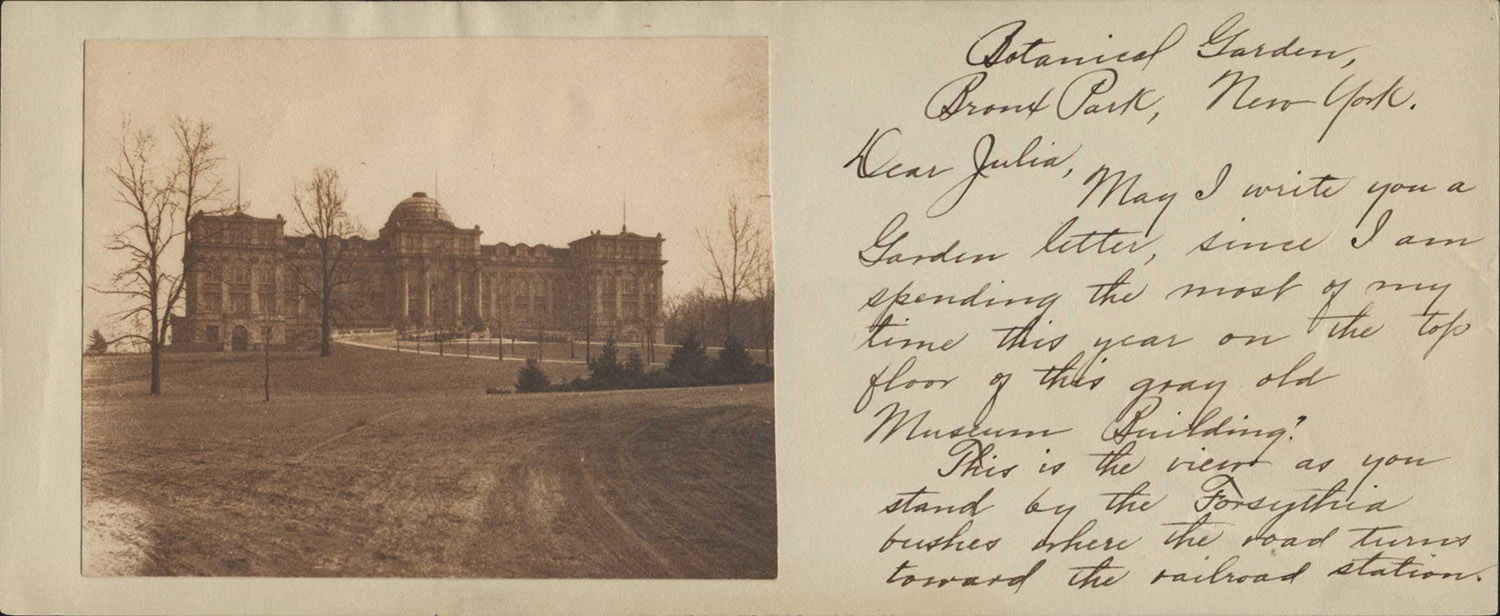 Botanical Garden,
Bronx Park, New York.
Dear Julia,
May I write you a
Garden letter, since I am
spending the most of my
time this year on the top
floor of this gray old
Museum Building?
This is the view as you
stand by the Forsythia
bushes where the road turns
toward the railroad station.